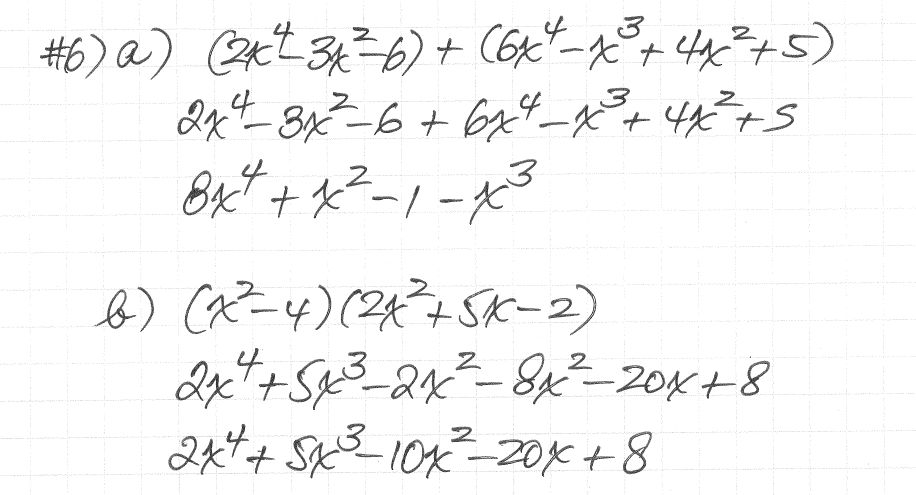 #6) a) (2x⁴-3x²-6) + (6x⁴-x³+4x²+5)
2x⁴-3x²-6 + 6x⁴-x³+4x²+5
8x⁴+x²-1-x³
b) (x²-4)(2x²+5x-2)
2x⁴+5x³-2x²-8x²-20x+8
2x⁴+5x³-10x²-20x+8